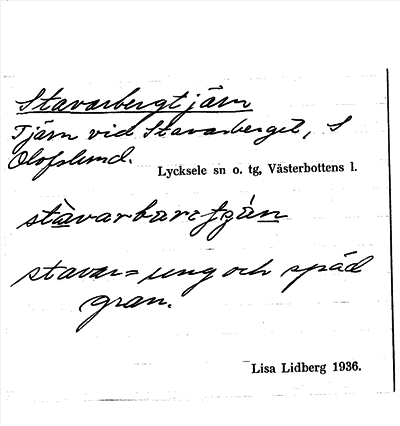 Stavarbergtjärn
Tjärn vid Stavarberget, S
Olofslund.
Lycksele sn o. tg, Västerbottens l.
stavar = ung och späd
gran.
Lisa Lidberg 1936.